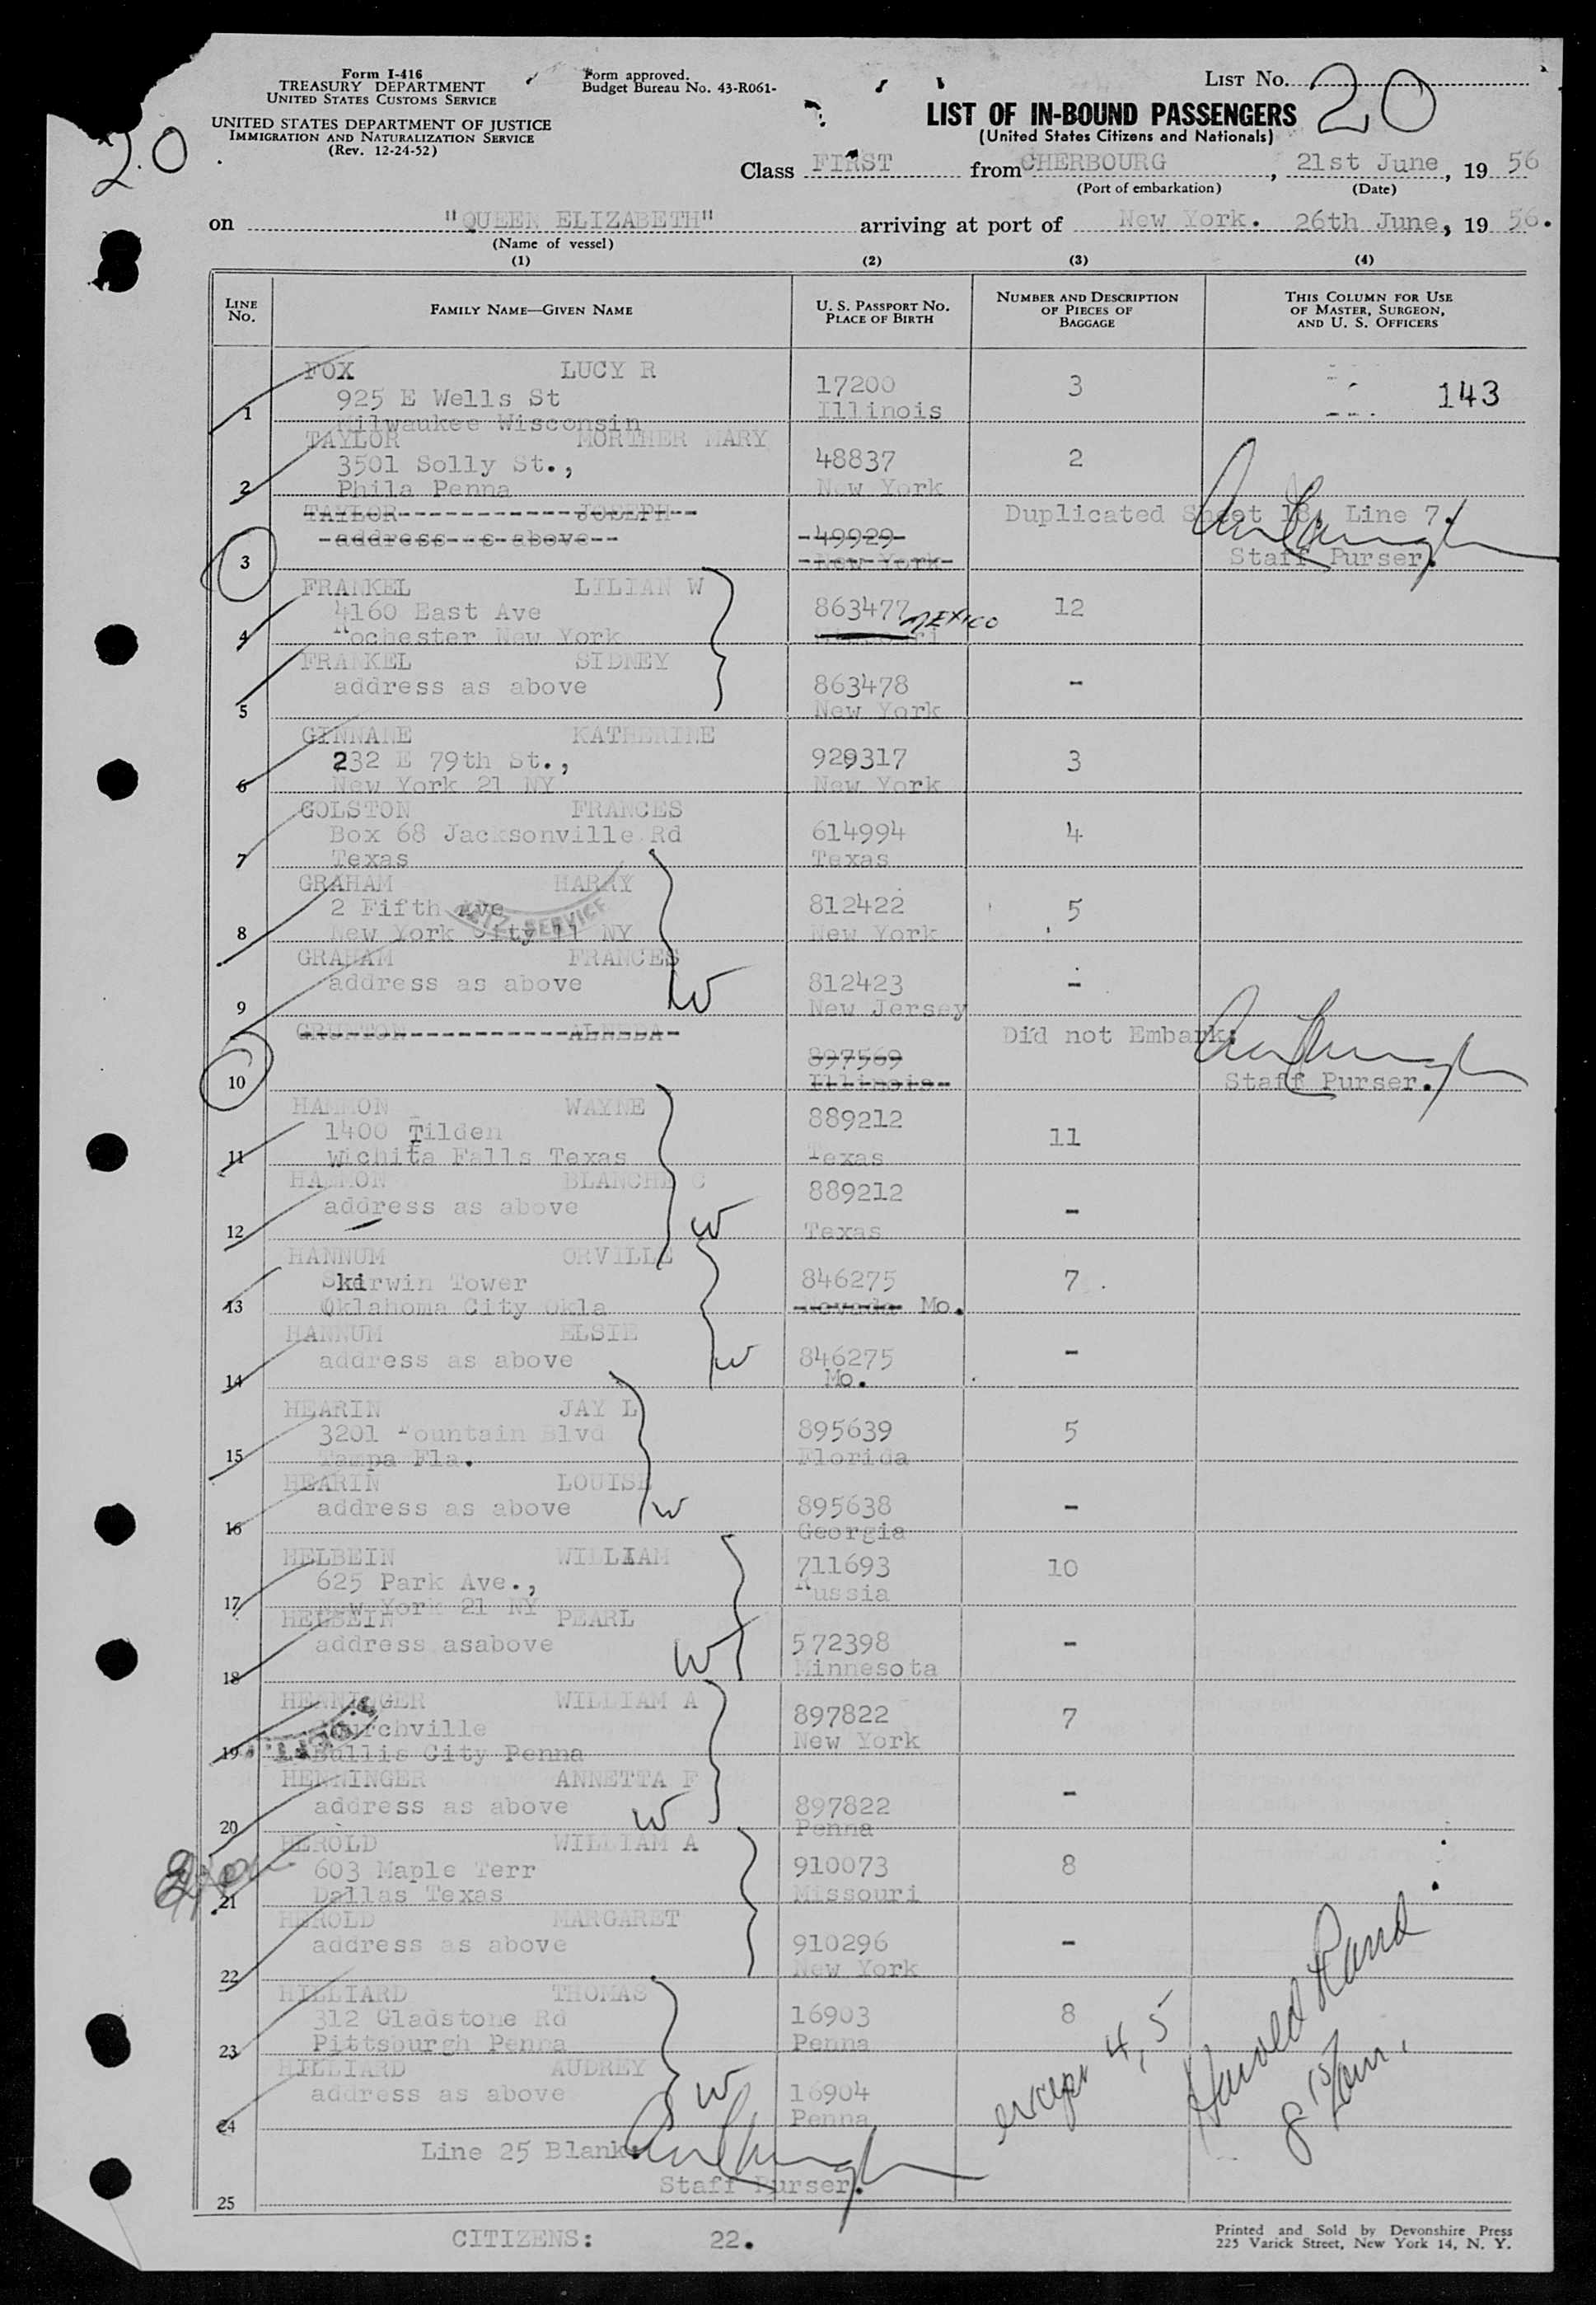 Form I-416
TREASURY DEPARTMENT
UNITED STATES CUSTOMS SERVICE
UNITED STATES DEPARTMENT OF JUSTICE
IMMIGRATION AND NATURALIZATION SERVICE
(Rev. 12-24-52)
Form approved.
Budget Bureau No. 43-R061-
LIST NO. 20
20
LIST OF IN-BOUND PASSENGERS
(United States Citizens and Nationals)
Class FIRST from CHERBOURG, 21st June, 19 56
(Port of embarkation) (Date)
on "QUEEN ELIZABETH" arriving at port of New York. 26th June, 19 56.
(Name of vessel)
(1) (2) (3) (4)
LINE NO. FAMILY NAME—GIVEN NAME U. S. PASSPORT NO. PLACE OF BIRTH NUMBER AND DESCRIPTION OF PIECES OF BAGGAGE THIS COLUMN FOR USE OF MASTER, SURGEON, AND U. S. OFFICERS
FOX LUCY R
925 E Wells St 17200 3 143
1 Milwaukee Wisconsin Illinois
TAYLOR MORTHER MARY
3501 Solly St., 48837 2
2 Phila Penna New York
TAYLOR JOSEPH Duplicated Sheet 18, Line 7.
address as above 49929
3 New York Staff Purser.
FRANKEL LILIAN W
4160 East Ave 863477 MEXICO 12
4 Rochester New York
FRANKEL SIDNEY
address as above 863478 -
5 New York
GINNANE KATHERINE
232 E 79th St., 929317 3
6 New York 21 NY New York
GOLSTON FRANCES
Box 68 Jacksonville Rd 614994 4
7 Texas Texas
GRAHAM HARRY
2 Fifth Ave 812422 5
8 New York City 11 NY New York
SERVICE
GRAHAM FRANCES
address as above 812423 -
9 New Jersey
W
GRUNTON Did not Embark.
897569
10 Illinois Staff Purser.
HAMMON WAYNE 889212
1400 Tilden 11
11 Wichita Falls Texas Texas
HAMMON BLANCHE C 889212
address as above -
12 W Texas
HANNUM ORVILLE
rwin Tower 846275 7
13 Oklahoma City Okla Nevada Mo.
HANNUM ELSIE
address as above W 846275 -
14 Mo.
HEARIN JAY L
3201 Fountain Blvd 895639 5
15 Tampa Fla. Florida
HEARIN LOUISE
address as above W 895638 -
16 Georgia
HELBEIN WILLIAM 711693 10
625 Park Ave., Russia
17 New York 21 NY
HELBEIN PEARL
address asabove 572398 -
18 W Minnesota
HENNINGER WILLIAM A 897822 7
urchville New York
19 City Penna
HENNINGER ANNETTA F
address as above W 897822 -
20 Penna
HEROLD WILLIAM A
603 Maple Terr 910073 8
21 Dallas Texas Missouri
HEROLD MARGARET
address as above 910296 -
22 New York
HILLIARD THOMAS
312 Gladstone Rd 16903 8
23 Pittsburgh Penna Penna
HILLIARD AUDREY
address as above W 16904
24 Penna
except 4, 5
Harold Rand
Line 25 Blank.
Staff Purser.
25
CITIZENS: 22.
Printed and Sold by Devonshire Press
225 Varick Street, New York 14, N. Y.